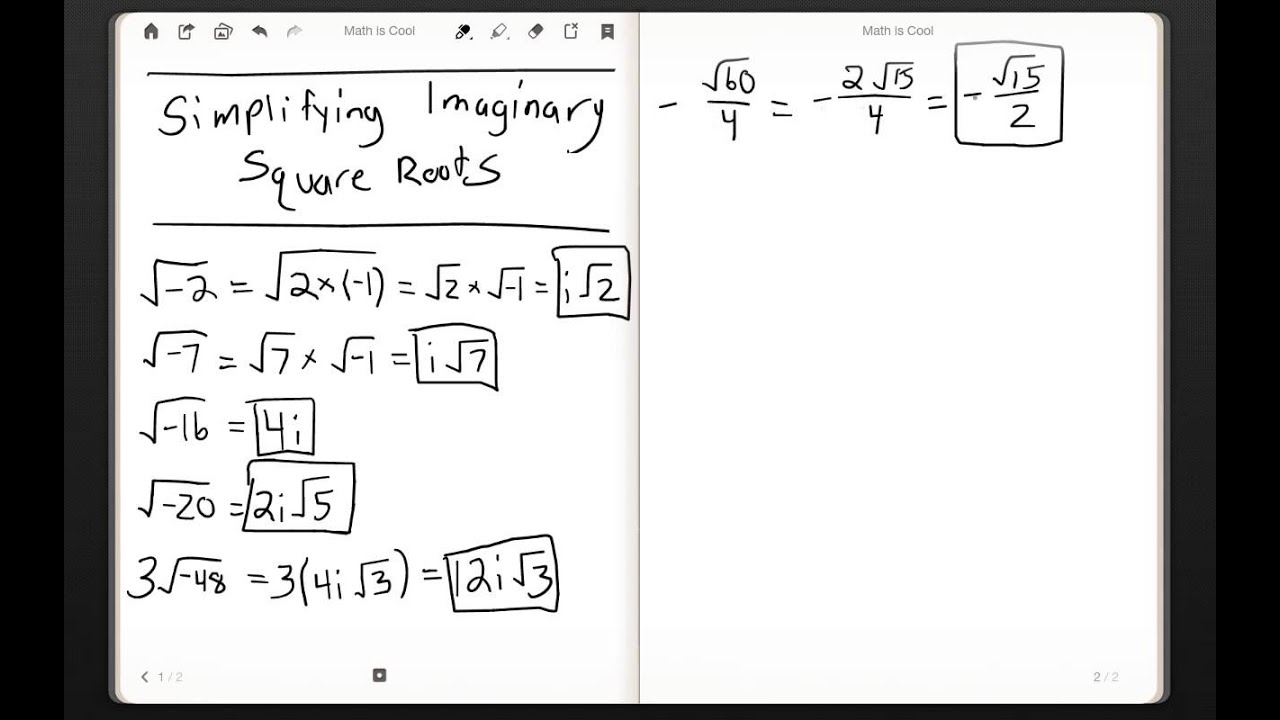 Math is Cool
Simplifying Imaginary
Square Roots
√-2 = √2×(-1) = √2 × √-1 = i√2
√-7 = √7 × √-1 = i√7
√-16 = 4i
√-20 = 2i√5
3√-48 = 3(4i√3) = 12i√3
1 / 2
Math is Cool
- √60/4 = - 2√15/4 = - √15/2
2 / 2